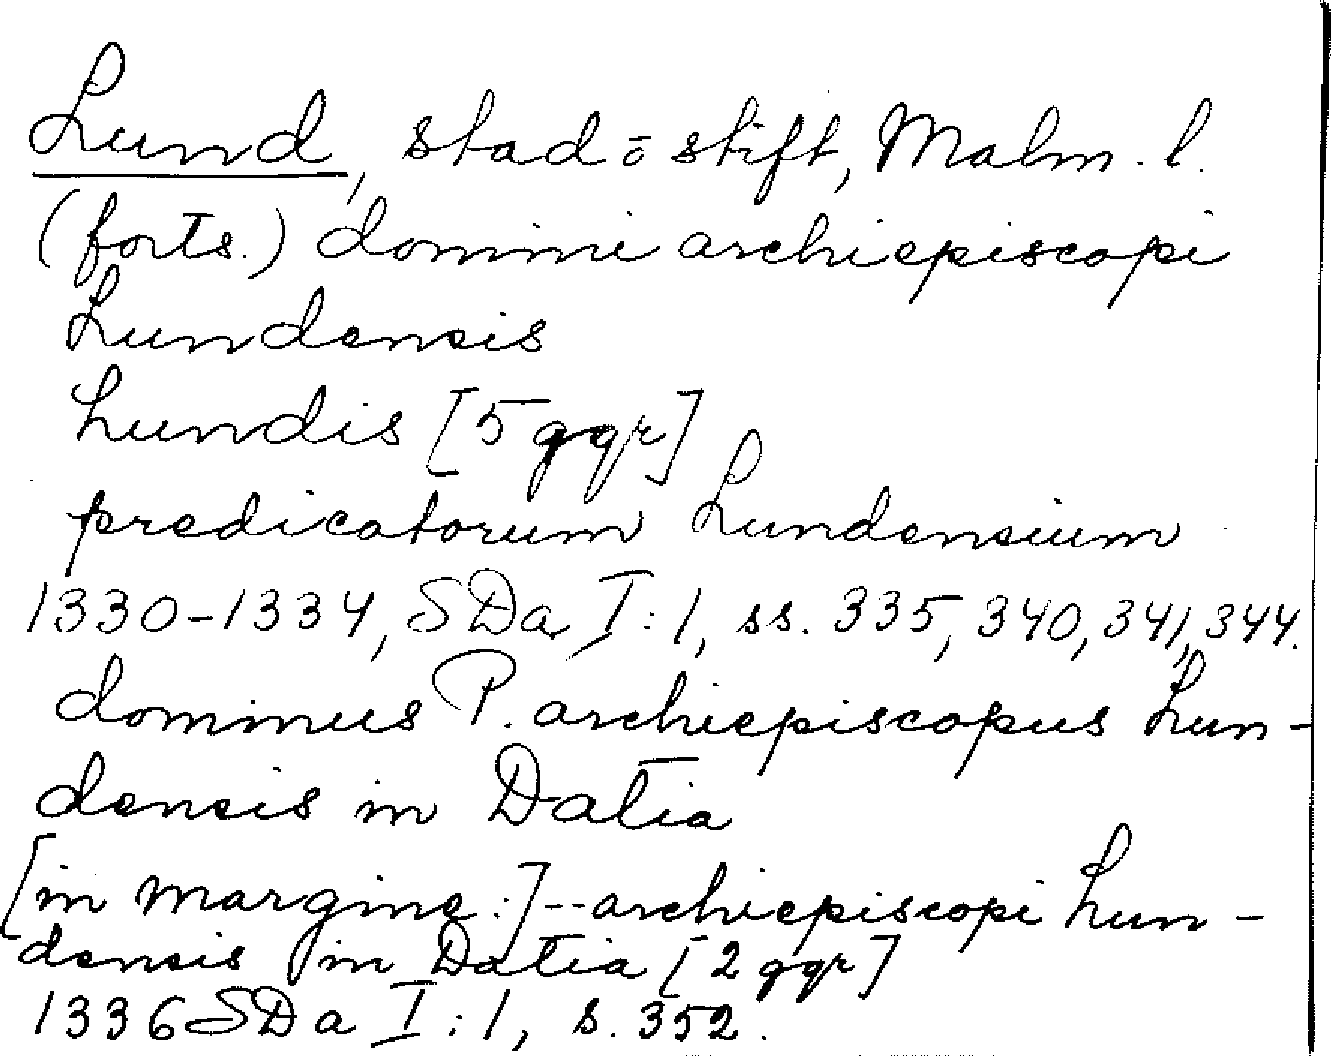 Lund, stad o stift, Malm. l.
(forts.) domini archiepiscopi
Lundensis
Lundis [5 ggr]
predicatorum Lundensium
1330-1334, SDa I:1, ss. 335, 340, 341, 344.
dominus P. archiepiscopus Lun-
densis in Datia
[in margine:] -- archiepiscopi Lun-
densis in Datia [2 ggr]
1336 SDa I:1, s. 352.